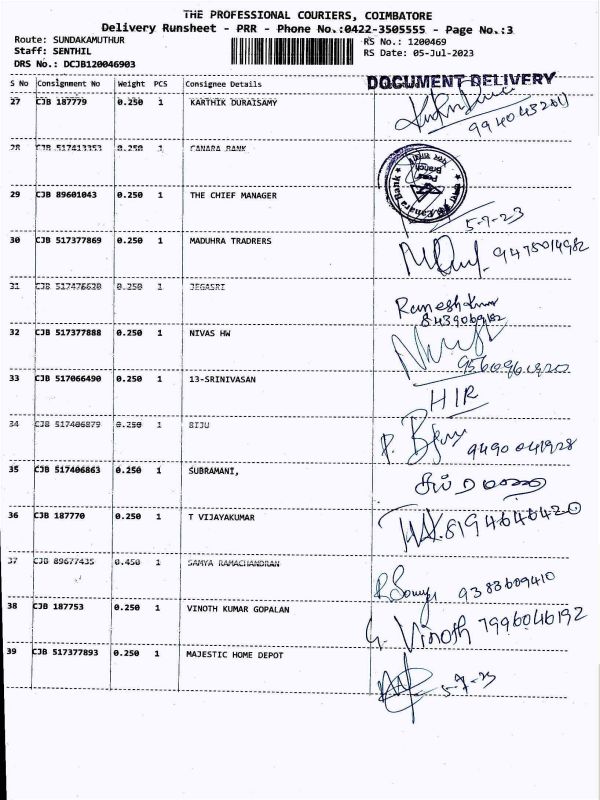 THE PROFESSIONAL COURIERS, COIMBATORE
Delivery Runsheet - PRR - Phone No.:0422-3505555 - Page No.:3
Route: SUNDAKAMUTHUR
RS No.: 1200469
Staff: SENTHIL
RS Date: 05-Jul-2023
DRS No.: DCJB120046903
S No Consignment No Weight PCS Consignee Details
DOCUMENT DELIVERY
27 CJB 187779 0.250 1 KARTHIK DURAISAMY
28 CJB 517413353 0.250 1 CANARA BANK
Canara Bank
Branch
29 CJB 89601043 0.250 1 THE CHIEF MANAGER
5-7-23
30 CJB 517377869 0.250 1 MADUHRA TRADRERS
9475014982
31 CJB 517476620 0.250 1 JEGASRI
Rameshkumar
8439069182
32 CJB 517377888 0.250 1 NIVAS HW
33 CJB 517066490 0.250 1 13-SRINIVASAN
H/R
34 CJB 517406879 0.250 1 BIJU
9490041928
35 CJB 517406863 0.250 1 SUBRAMANI,
36 CJB 187770 0.250 1 T VIJAYAKUMAR
8194646420
37 CJB 89677435 0.450 1 SAMYA RAMACHANDRAN
9383609410
38 CJB 187753 0.250 1 VINOTH KUMAR GOPALAN
G. Vinoth 7996046192
39 CJB 517377893 0.250 1 MAJESTIC HOME DEPOT
5-7-23